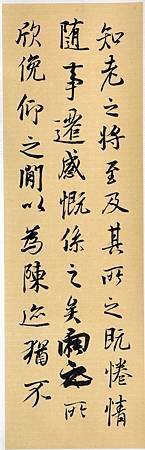 知老之将至及其所之既惓情
随事遷感慨係之矣向之所
欣俛仰之閒以為陳迹猶不